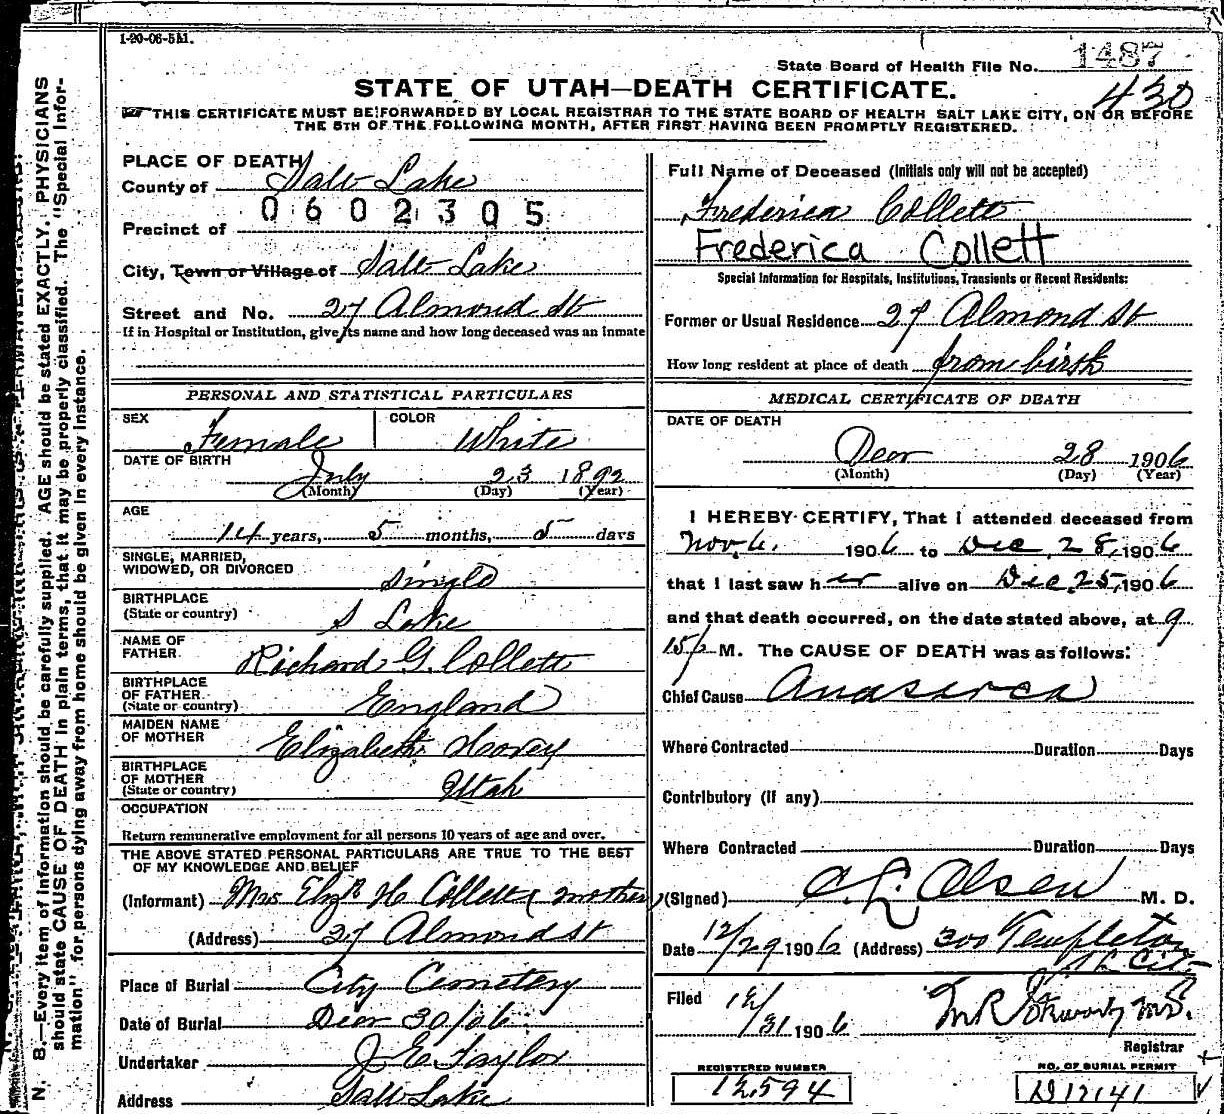 1-20-06-5M.
State Board of Health File No. 1487
430
STATE OF UTAH—DEATH CERTIFICATE.
THIS CERTIFICATE MUST BE FORWARDED BY LOCAL REGISTRAR TO THE STATE BOARD OF HEALTH SALT LAKE CITY, ON OR BEFORE
THE 5TH OF THE FOLLOWING MONTH, AFTER FIRST HAVING BEEN PROMPTLY REGISTERED.
PLACE OF DEATH
County of Salt Lake
0602305
Precinct of
City, Town or Village of Salt Lake
Street and No. 27 Almond St
If in Hospital or Institution, give its name and how long deceased was an inmate
PERSONAL AND STATISTICAL PARTICULARS
SEX Female COLOR White
DATE OF BIRTH July 23 1892
(Month) (Day) (Year)
AGE
14 years, 5 months, 5 days
SINGLE, MARRIED,
WIDOWED, OR DIVORCED Single
BIRTHPLACE
(State or country) S Lake
NAME OF
FATHER Richard G. Collett
BIRTHPLACE
OF FATHER
(State or country) England
MAIDEN NAME
OF MOTHER Elizabeth
BIRTHPLACE
OF MOTHER
(State or country) Utah
OCCUPATION
Return remunerative employment for all persons 10 years of age and over.
THE ABOVE STATED PERSONAL PARTICULARS ARE TRUE TO THE BEST
OF MY KNOWLEDGE AND BELIEF
(Informant) Mrs Elizth H Collett (mother)
(Address) 27 Almond St
Place of Burial City Cemetery
Date of Burial Decr 30/06
Undertaker J E Taylor
Address Salt Lake
Full Name of Deceased (Initials only will not be accepted)
Frederica Collett
Frederica Collett
Special Information for Hospitals, Institutions, Transients or Recent Residents:
Former or Usual Residence 27 Almond St
How long resident at place of death from birth
MEDICAL CERTIFICATE OF DEATH
DATE OF DEATH
Decr 28 1906
(Month) (Day) (Year)
I HEREBY CERTIFY, That I attended deceased from
Nov. 6. 1906 to Dec 28, 1906
that I last saw her alive on Dec. 25, 1906
and that death occurred, on the date stated above, at 9
15 P M. The CAUSE OF DEATH was as follows:
Chief Cause Anasarca
Where Contracted Duration Days
Contributory (if any)
Where Contracted Duration Days
(Signed) Olsen M. D.
Date 12/29 1906 (Address) 300 Templeton
Filed 12/31 1906
Registrar
REGISTERED NUMBER
12594
NO. OF BURIAL PERMIT
D 17141
N. B.—Every item of information should be carefully supplied. AGE should be stated EXACTLY. PHYSICIANS
should state CAUSE OF DEATH in plain terms, that it may be properly classified. The "Special Infor-
mation" for persons dying away from home should be given in every instance.